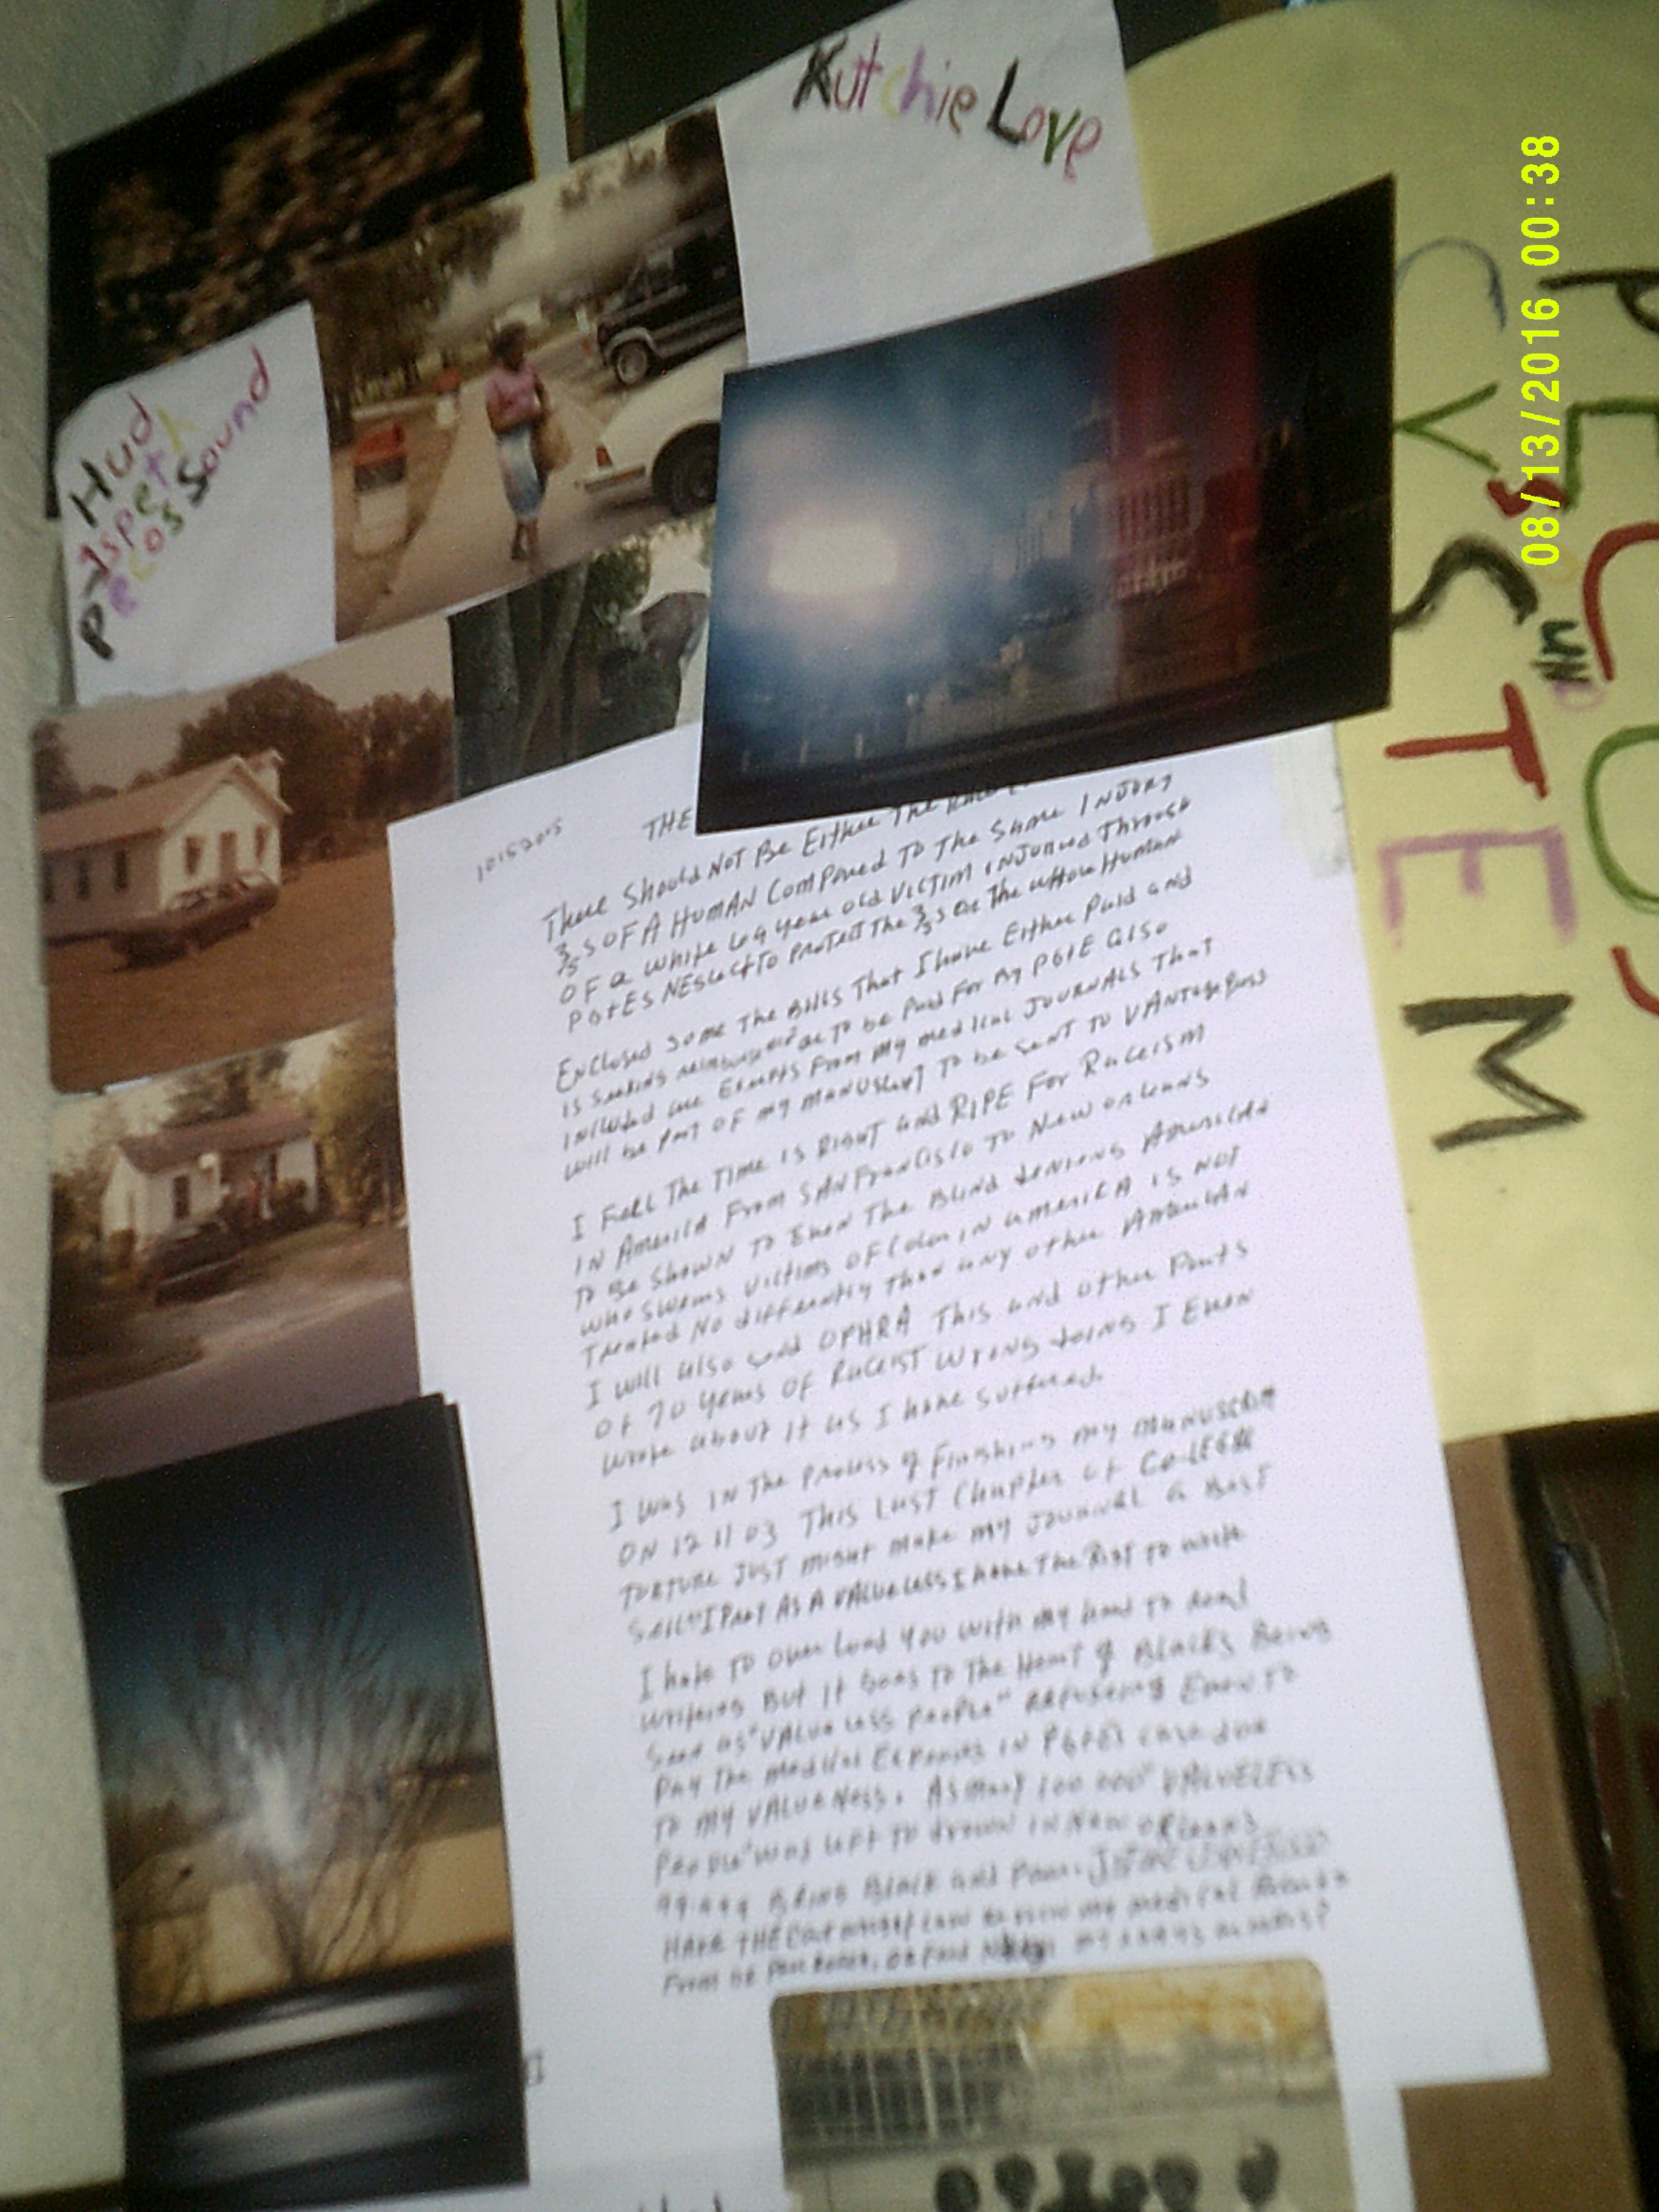 Kutchie Love
Hud
Aspeth
Pecos Sound
08/13/2016 00:38
PECOS
SYSTEM
10152015
THE
There Should NOT Be Either The Race
3/5s OF A HUMAN Compared To The Same INJURY
OF a white 64 year old VICTIM INJURED Through
PG+Es NEglect To Protect The 3/5s OR The whole Human
Enclosed some The Bills That I have Either Paid and
is seeking to be Paid For My PG+E also
included are Exerpts From My medical JOURNALS That
will be Part OF my manuscript To be sent To VANTAGE Press
I Feel The Time is RIGHT and RIPE For Raceism
IN America From SAN Francisco To New orleans
To Be Shown To Even The Blind denying American
who swears victims of Color in america is NOT
Treated No differently Than any other American
I will also send OPHRA This and other Parts
OF 70 years OF Raceist wrong doings I Even
wrote about it as I have suffered.
I was IN The Process of Finishing my MANUSCRIPT
ON 12 11 03 This Last Chapter of
TORTURE JUST might make my JOURNAL a Best
Sell I Pray AS A VALUELESS I have The Right to write
I hate To over Load You with my hard to read
writings But it goes to The Heart of Blacks Being
Seen as "VALUE LESS PEOPLE" REFUSEING Even To
Pay The medical Expenses in PG+Es case due
To my VALUENESS. As Many 100 000 "VALUELESS
PEOPLE" was left To drown in New ORleans
99.999 Being Black and Poor.
HAVE THE to view my medical Records
From